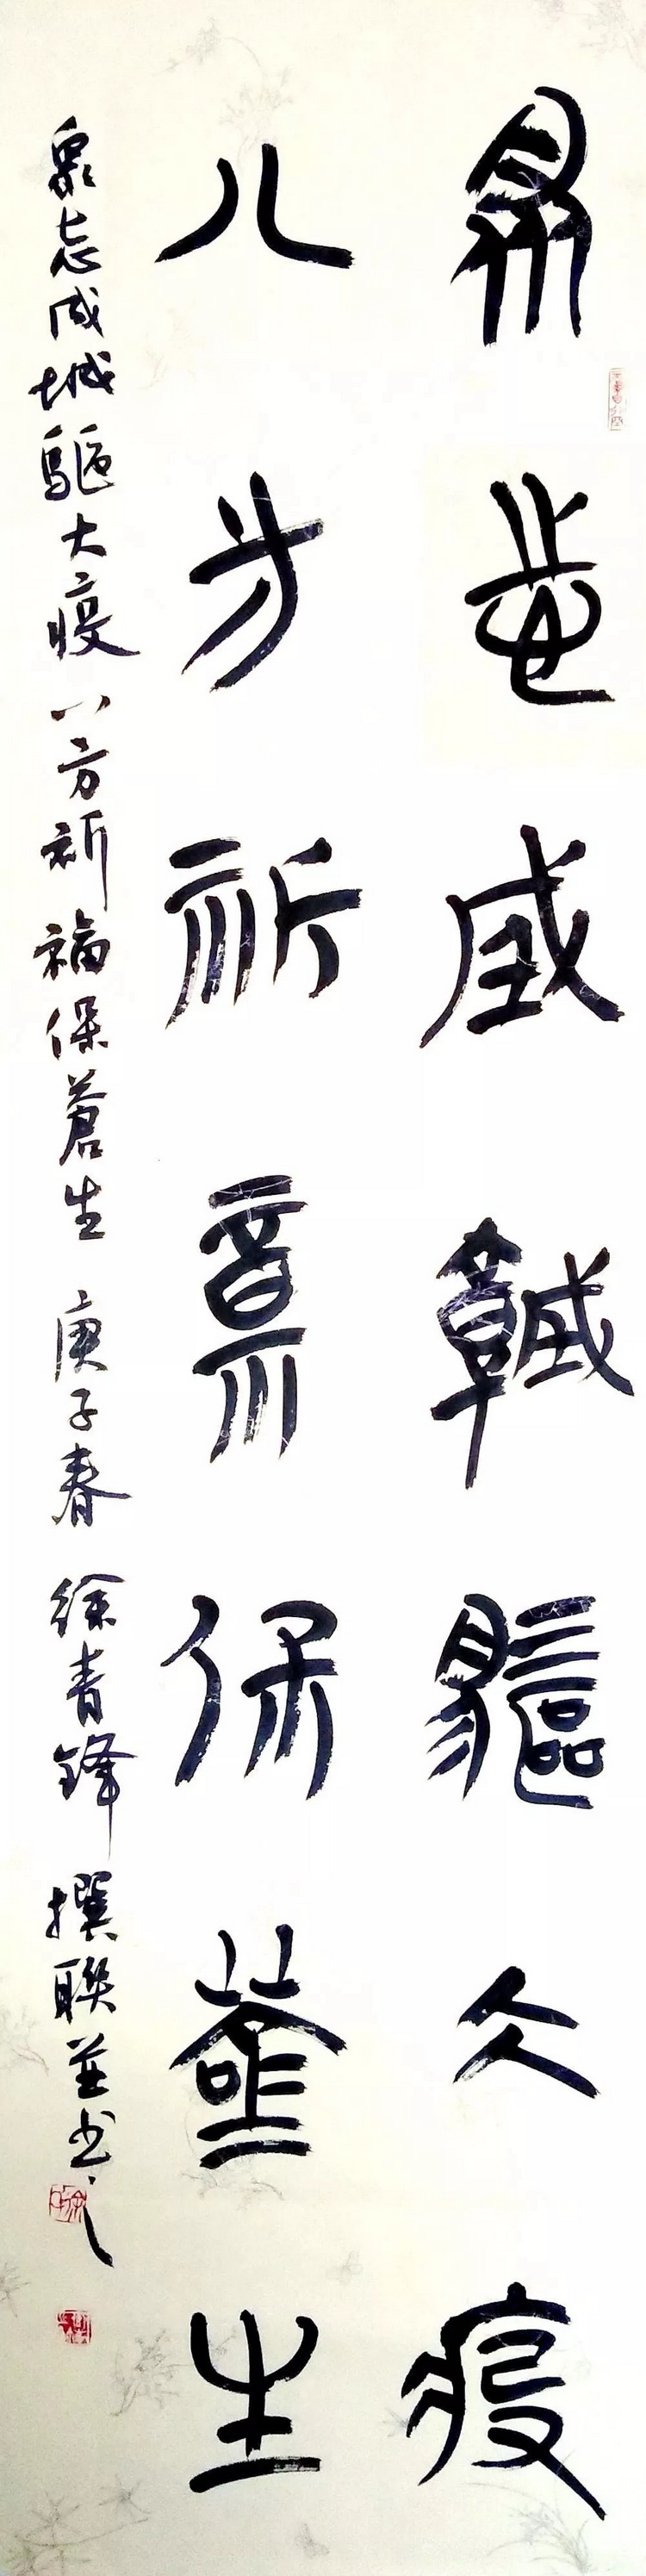 眾志成城驅大疫
八方祈福保蒼生
眾志成城驅大疫 八方祈福保蒼生 庚子春 徐青鋒 撰聯並書